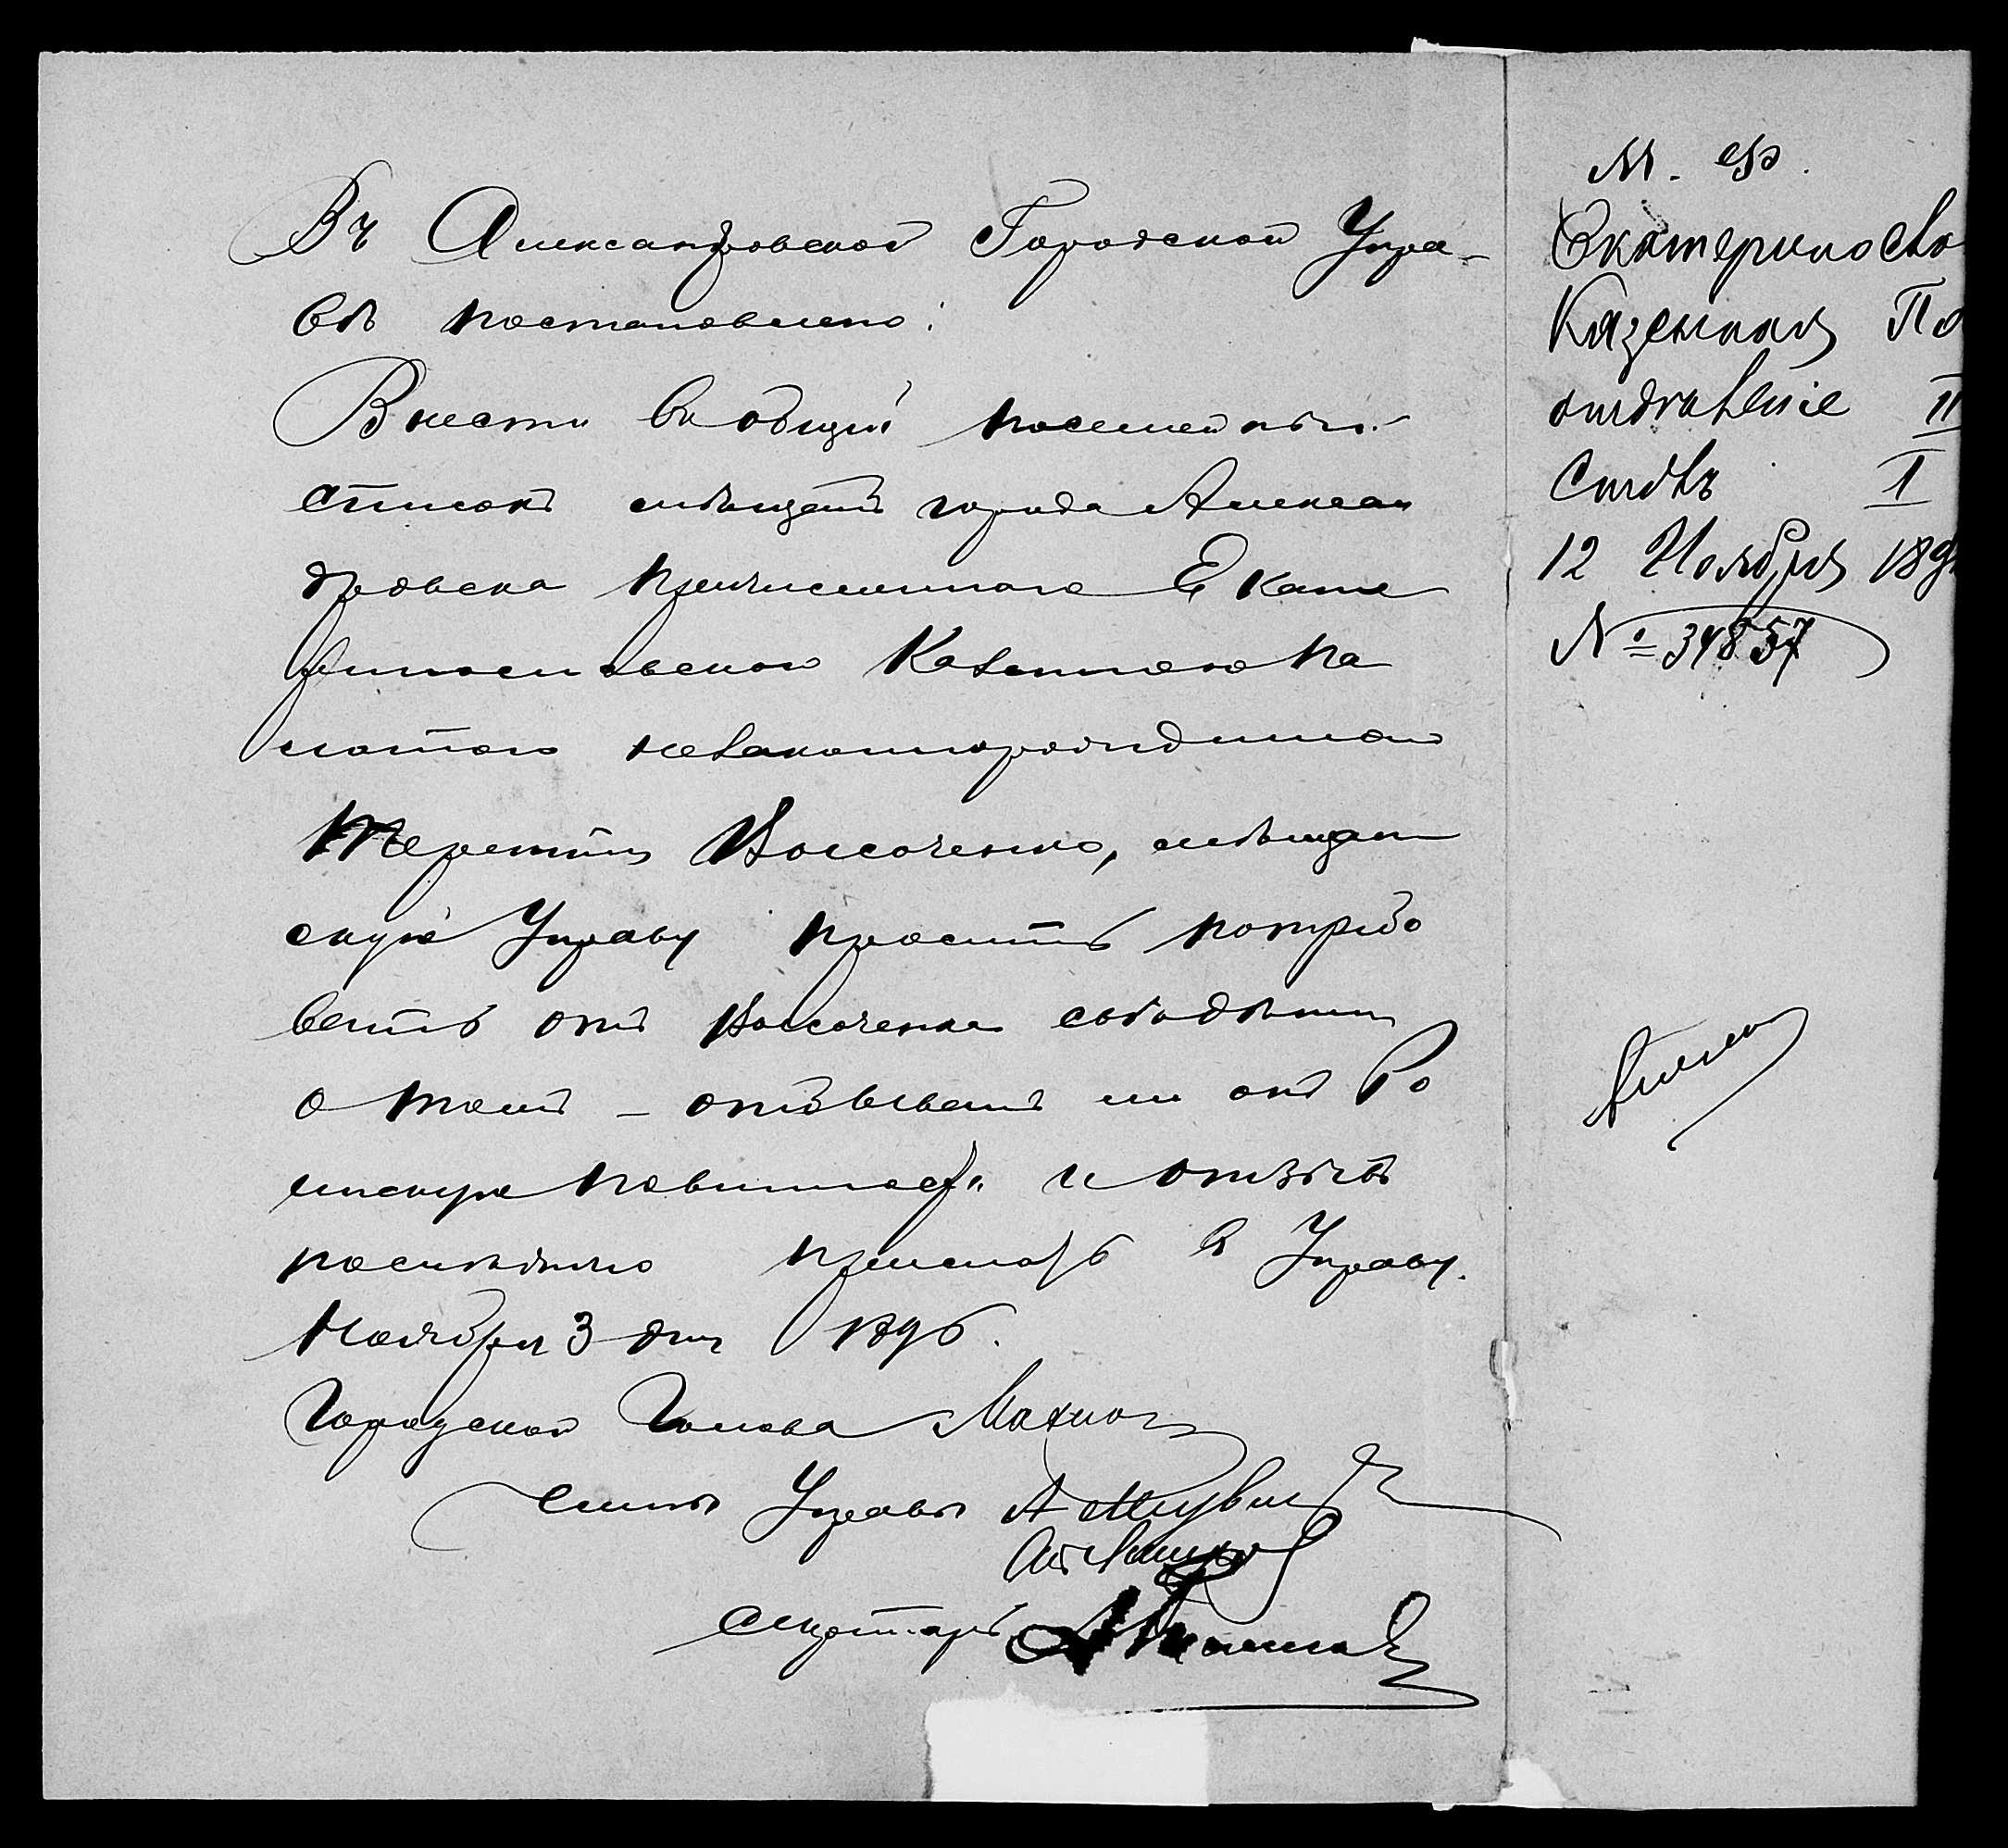 Въ Александровской Городской Упра-
вѣ постановлено:
Внести въ общій посемейный
списокъ мѣщанъ города Алексан
дровска причисленнаго Екате
ринославскою Казенною Па
латою незаконнорожденнаго
Терентія Косоченко, мѣщан
скую Управу проситъ потребо
вать отъ Косоченка свѣдѣнія
о томъ - отбывалъ ли онъ Во
инскую повинность и отзывъ
посл
прислать въ Управу.
Ноября 3 дня 1896.
Городской Голова Махно
Члены Управы А
Секретарь А
М. Ф.
Екатеринославс
Казенная Па
отдѣленіе II
Столъ I
12 Ноября 189
№ 34857